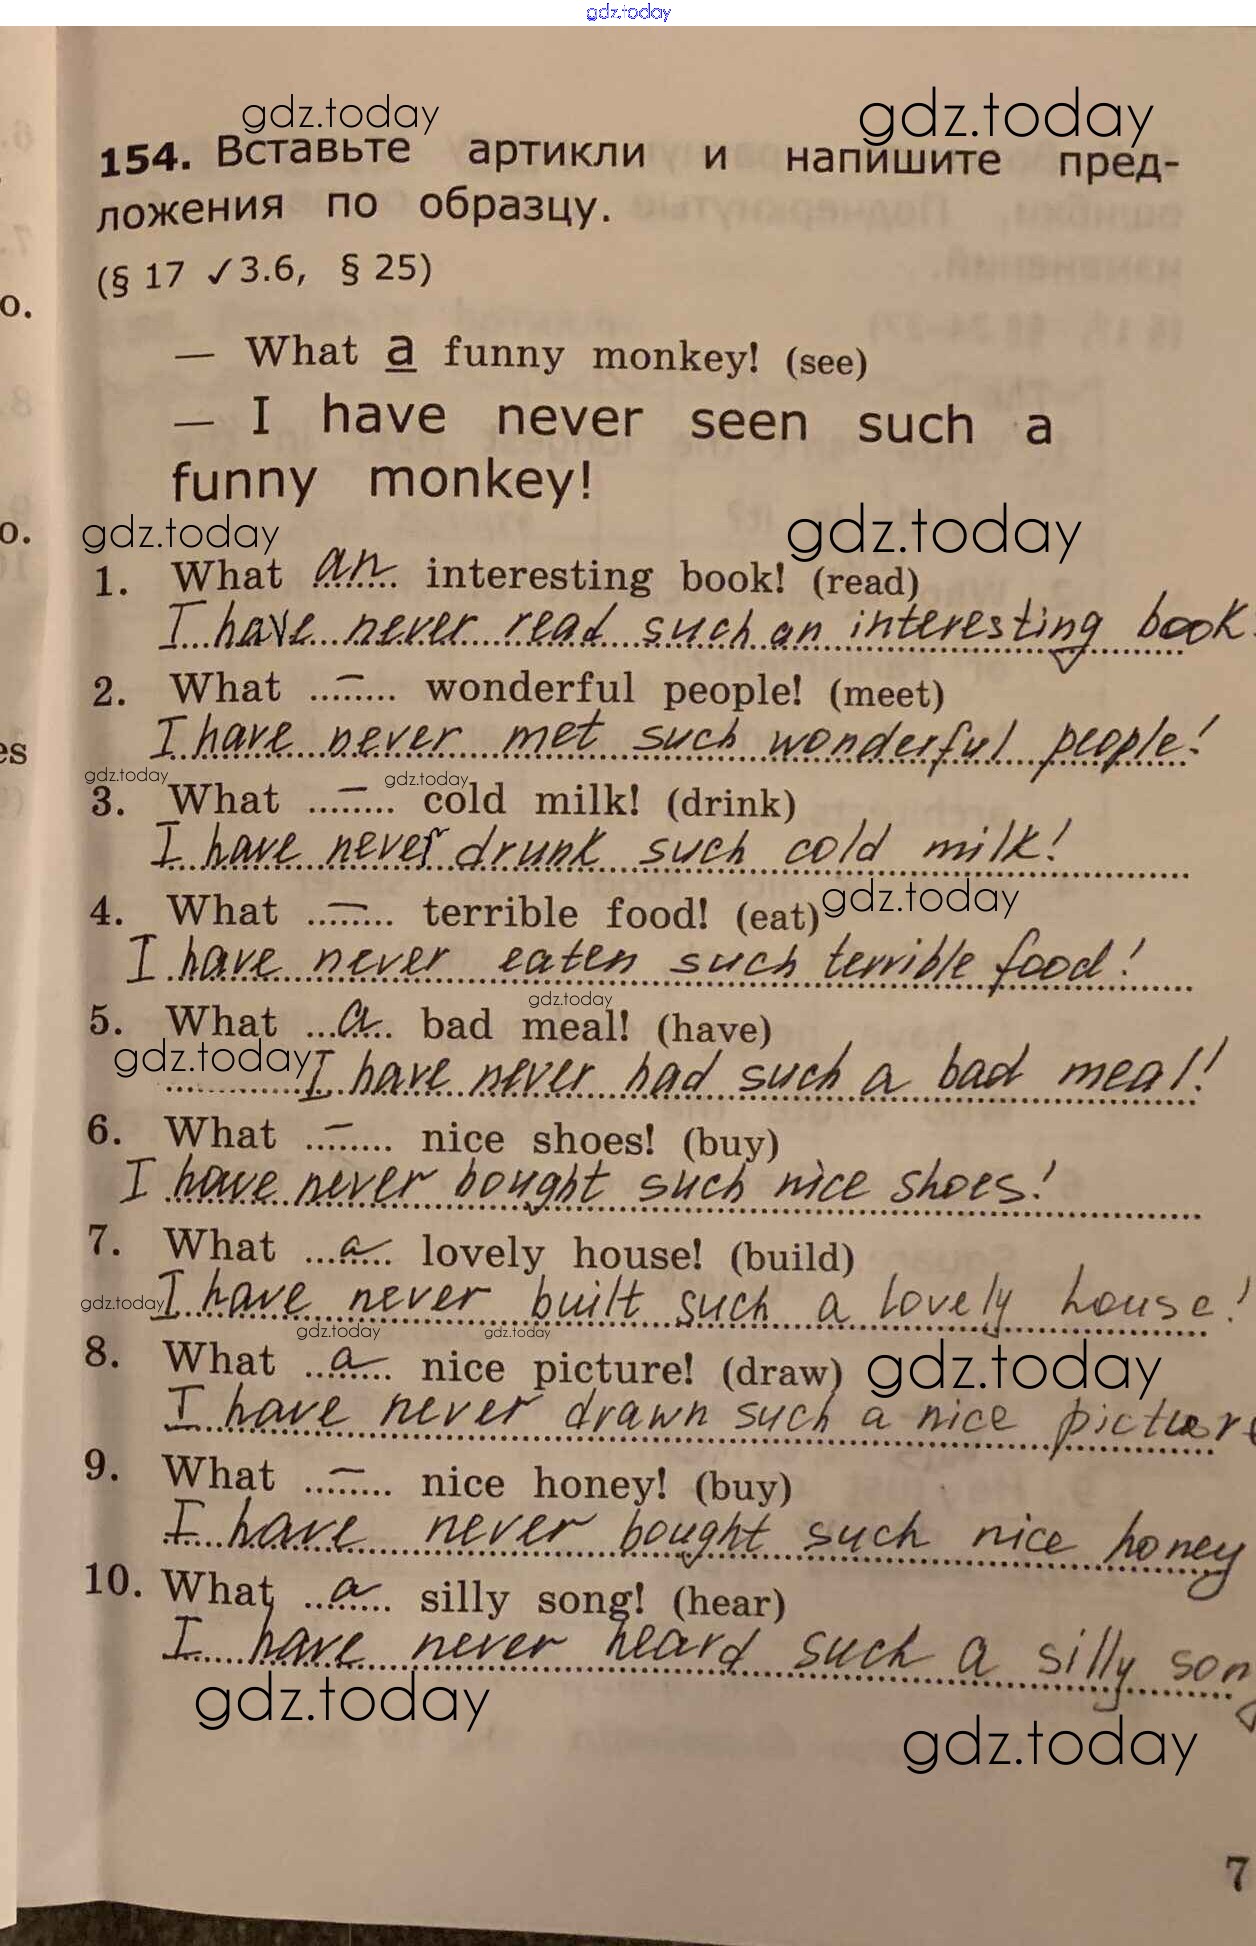 gdz.today
gdz.today gdz.today
154. Вставьте артикли и напишите пред-
ложения по образцу.
(§ 17 ✓3.6, § 25)
о.
— What a funny monkey! (see)
— I have never seen such a
funny monkey!
gdz.today gdz.today
о.
1. What an interesting book! (read)
I have never read such an interesting book.
2. What — wonderful people! (meet)
I have never met such wonderful people!
es
gdz.today gdz.today
3. What — cold milk! (drink)
I have never drunk such cold milk!
4. What — terrible food! (eat) gdz.today
I have never eaten such terrible food!
gdz.today
5. What a bad meal! (have)
gdz.today I have never had such a bad meal!
6. What — nice shoes! (buy)
I have never bought such nice shoes!
7. What a lovely house! (build)
gdz.today I have never built such a lovely house!
gdz.today gdz.today
8. What a nice picture! (draw) gdz.today
I have never drawn such a nice picture
9. What — nice honey! (buy)
I have never bought such nice honey
10. What a silly song! (hear)
I have never heard such a silly song
gdz.today
gdz.today
7